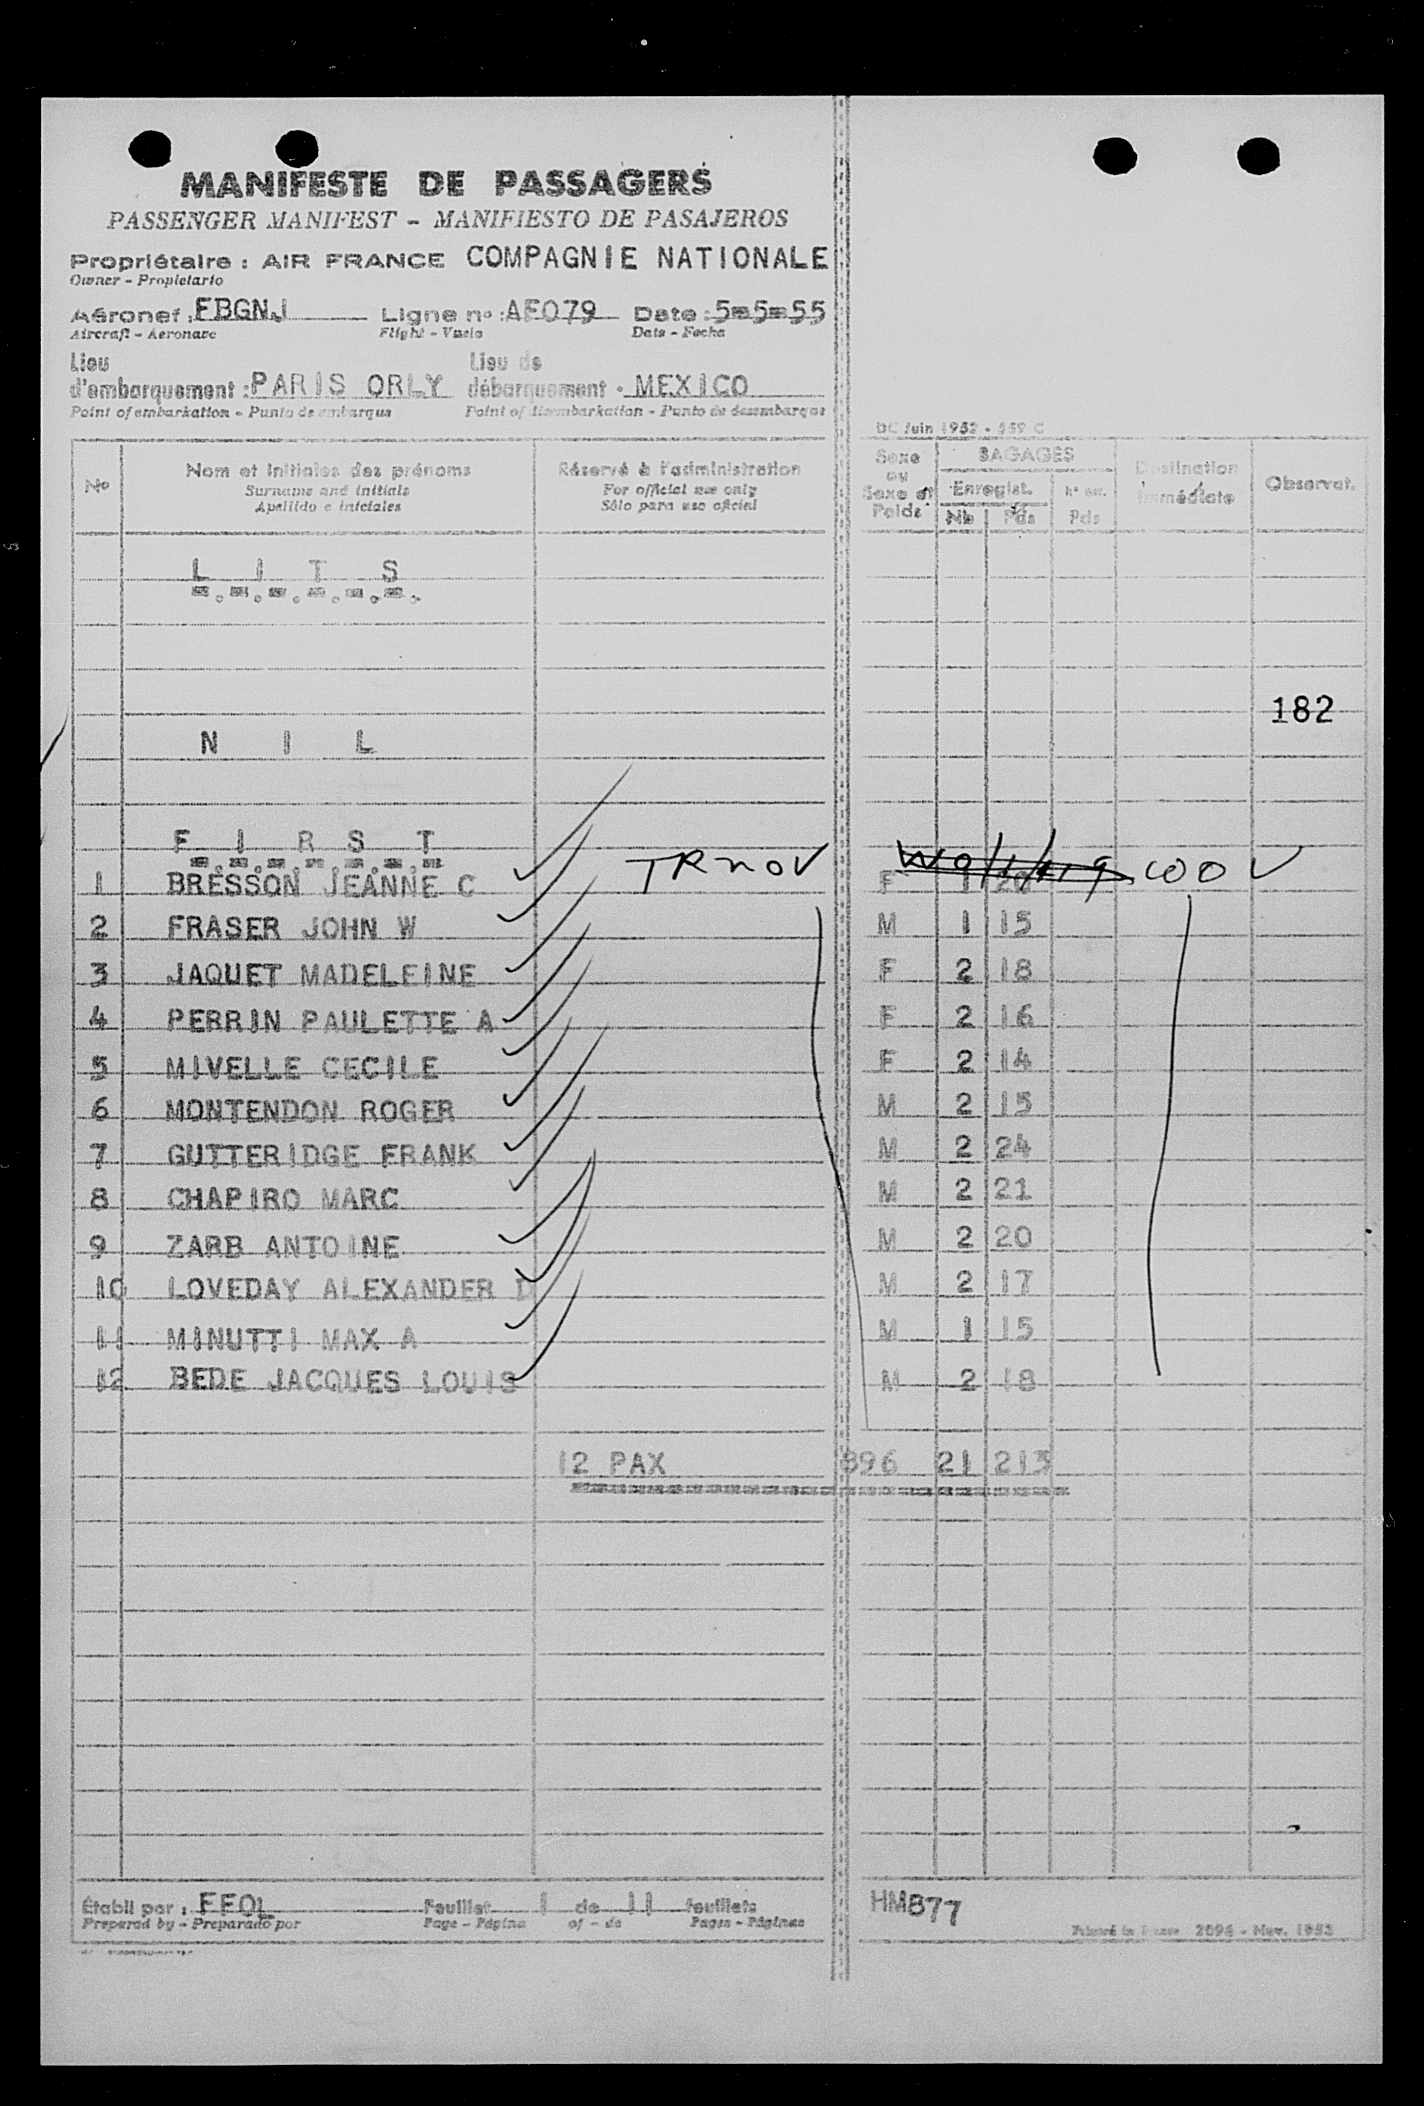 MANIFESTE DE PASSAGERS
PASSENGER MANIFEST - MANIFIESTO DE PASAJEROS
Propriétaire : AIR FRANCE COMPAGNIE NATIONALE
Owner - Propietario
Aéronef : FBGNJ Ligne no : AF079 Date : 5-5-55
Aircraft - Aeronave Flight - Vuelo Date - Fecha
Lieu d'embarquement : PARIS ORLY Lieu de débarquement - MEXICO
Point of embarkation - Punto de embarque Point of disembarkation - Punto de desembarque
DC Juin 1952 - 559 C
No Nom et initiales des prénoms Réservé à l'administration Sexe ou Sexe et Poids BAGAGES Destination immédiate Observat.
Surname and initials For official use only Enregist.
Apellido e iniciales Sólo para uso oficial Nb Pds Pds
L I T S
182
N I L
F I R S T
1 BRESSON JEANNE C TRNOV F 1 20 COOV
2 FRASER JOHN W M 1 15
3 JAQUET MADELEINE F 2 18
4 PERRIN PAULETTE A F 2 16
5 MIVELLE CECILE F 2 14
6 MONTENDON ROGER M 2 15
7 GUTTERIDGE FRANK M 2 24
8 CHAPIRO MARC M 2 21
9 ZARB ANTOINE M 2 20
10 LOVEDAY ALEXANDER D M 2 17
11 MINUTTI MAX A M 1 15
12 BEDE JACQUES LOUIS M 2 18
12 PAX 896 21 213
Établi par : FFOL Feuillet 1 de 11 feuillets HM877
Prepared by - Preparado por Page - Página of - de Pages - Páginas 2096 - Nov. 1953